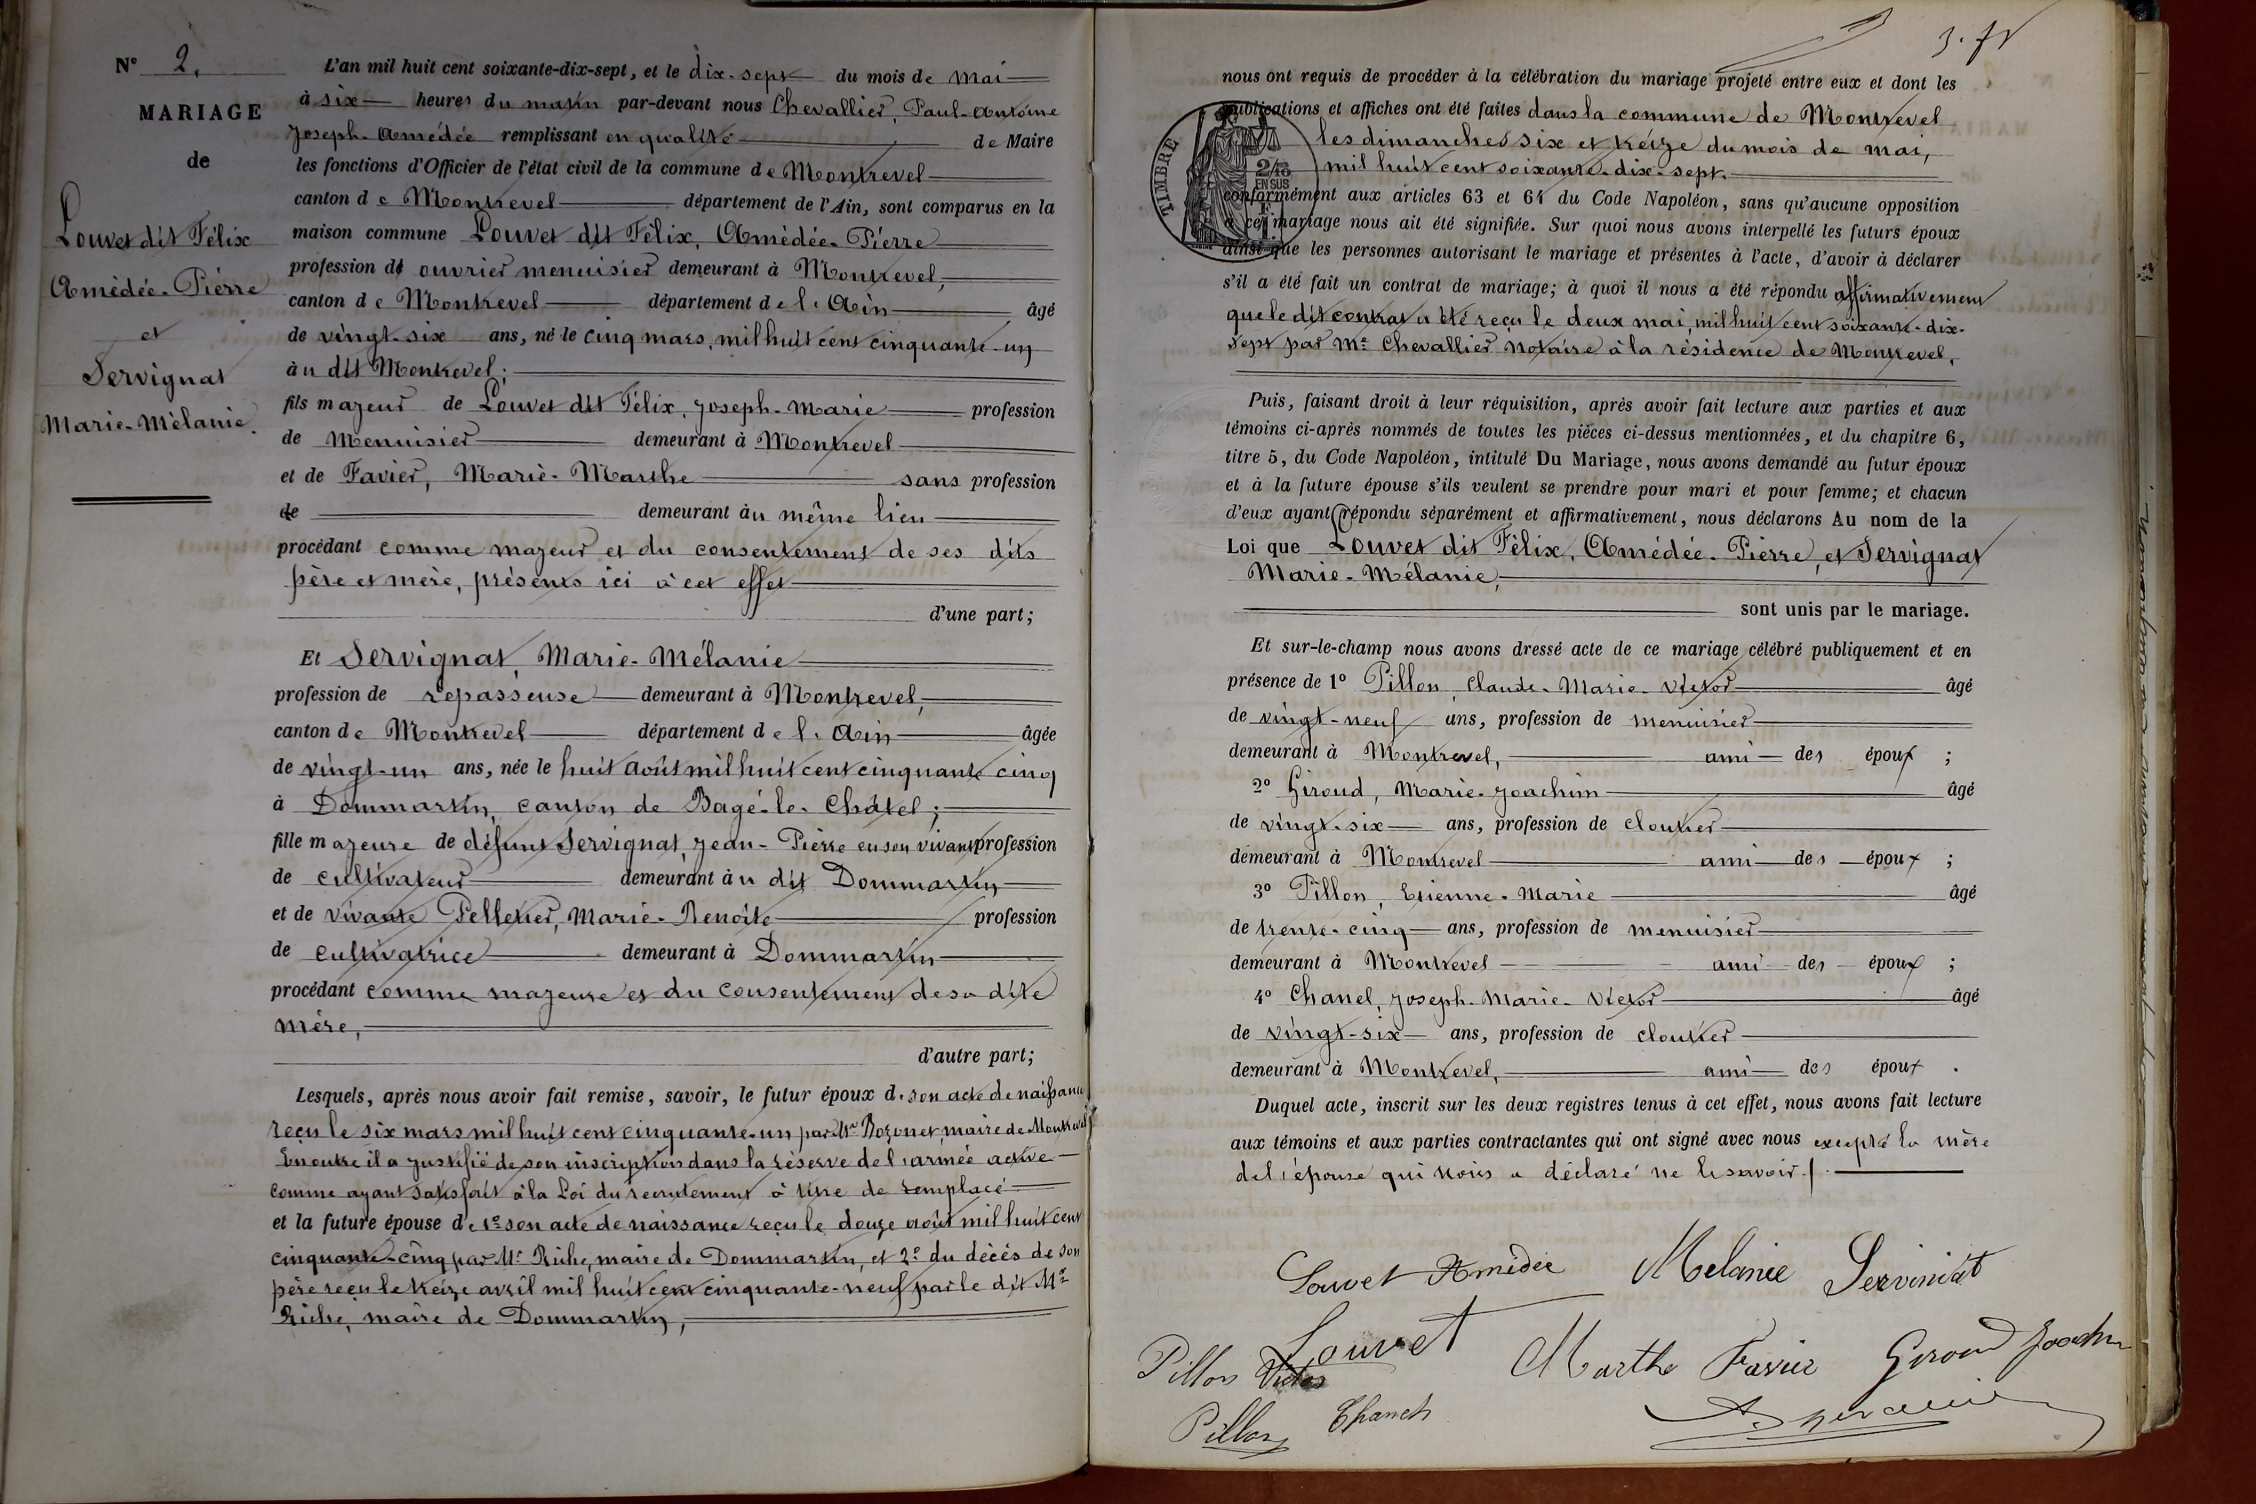 N° 2.
MARIAGE
de
Louvet dit Félix
Amédée-Pierre
et
Servignat
Marie-Mélanie.
L'an mil huit cent soixante-dix-sept, et le dix-sept du mois de mai
à six heures du matin par-devant nous Chevallier, Paul-Antoine
Joseph-Amédée remplissant en qualité de Maire
les fonctions d'Officier de l'état civil de la commune de Montrevel
canton de Montrevel département de l'Ain, sont comparus en la
maison commune Louvet dit Félix, Amédée-Pierre
profession d' ouvrier menuisier demeurant à Montrevel,
canton de Montrevel département de l'Ain âgé
de vingt-six ans, né le cinq mars, mil huit cent cinquante-un
à u dit Montrevel;
fils majeur de Louvet dit Félix, Joseph-Marie profession
de Menuisier demeurant à Montrevel
et de Favier, Marie-Marthe sans profession
de demeurant à u même lieu
procédant comme majeur et du consentement de ses dits
père et mère, présents ici à cet effet
d'une part;
Et Servignat, Marie-Mélanie
profession de repasseuse demeurant à Montrevel,
canton de Montrevel département de l'Ain âgée
de vingt-un ans, née le huit août mil huit cent cinquante cinq
à Dommartin, canton de Bagé-le-Châtel;
fille majeure de défunt Servignat, Jean-Pierre en son vivant profession
de cultivateur demeurant à u dit Dommartin
et de vivante Pelletier, Marie-Benoîte profession
de cultivatrice demeurant à Dommartin
procédant comme majeure et du consentement de sa dite
mère,
d'autre part;
Lesquels, après nous avoir fait remise, savoir, le futur époux d. son acte de naissance
reçu le six mars mil huit cent cinquante-un par Mr Bozonet, maire de Montrevel
En outre il a justifié de son inscription dans la réserve de l'armée active
comme ayant satisfait à la Loi du recrutement à titre de remplacé
et la future épouse de 1° son acte de naissance reçu le douze août mil huit cent
cinquante-cinq par Mr Riche, maire de Dommartin, et 2° du décès de son
père reçu le treize avril mil huit cent cinquante-neuf par le dit Mr
Riche, maire de Dommartin,
nous ont requis de procéder à la célébration du mariage projeté entre eux et dont les
publications et affiches ont été faites dans la commune de Montrevel
les dimanches six et treize du mois de mai,
mil huit cent soixante-dix-sept.
TIMBRE
EN SUS
conformément aux articles 63 et 64 du Code Napoléon, sans qu'aucune opposition
à cet mariage nous ait été signifiée. Sur quoi nous avons interpellé les futurs époux
ainsi que les personnes autorisant le mariage et présentes à l'acte, d'avoir à déclarer
s'il a été fait un contrat de mariage; à quoi il nous a été répondu affirmativement
que le dit contrat a été reçu le deux mai, mil huit cent soixante-dix-
sept par Me Chevallier notaire à la résidence de Montrevel,
Puis, faisant droit à leur réquisition, après avoir fait lecture aux parties et aux
témoins ci-après nommés de toutes les pièces ci-dessus mentionnées, et du chapitre 6,
titre 5, du Code Napoléon, intitulé Du Mariage, nous avons demandé au futur époux
et à la future épouse s'ils veulent se prendre pour mari et pour femme; et chacun
d'eux ayant répondu séparément et affirmativement, nous déclarons Au nom de la
Loi que Louvet dit Félix, Amédée-Pierre, et Servignat
Marie-Mélanie,
sont unis par le mariage.
Et sur-le-champ nous avons dressé acte de ce mariage célébré publiquement et en
présence de 1° Pillon, Claude-Marie-Victor âgé
de vingt-neuf ans, profession de menuisier
demeurant à Montrevel, ami des époux ;
2° Giroud, Marie-Joachim âgé
de vingt-six ans, profession de cloutier
demeurant à Montrevel ami des époux ;
3° Pillon, Etienne-Marie âgé
de trente-cinq ans, profession de menuisier
demeurant à Montrevel ami des époux ;
4° Chanel, Joseph-Marie-Victor âgé
de vingt-six ans, profession de cloutier
demeurant à Montrevel, ami des époux .
Duquel acte, inscrit sur les deux registres tenus à cet effet, nous avons fait lecture
aux témoins et aux parties contractantes qui ont signé avec nous excepté la mère
de l'épouse qui nous a déclaré ne le savoir.
Louvet Amédée Melanie Serviniat
Louvet
Pillon Victor Marthe Favier Giroud Joachim
Pillon Chanel